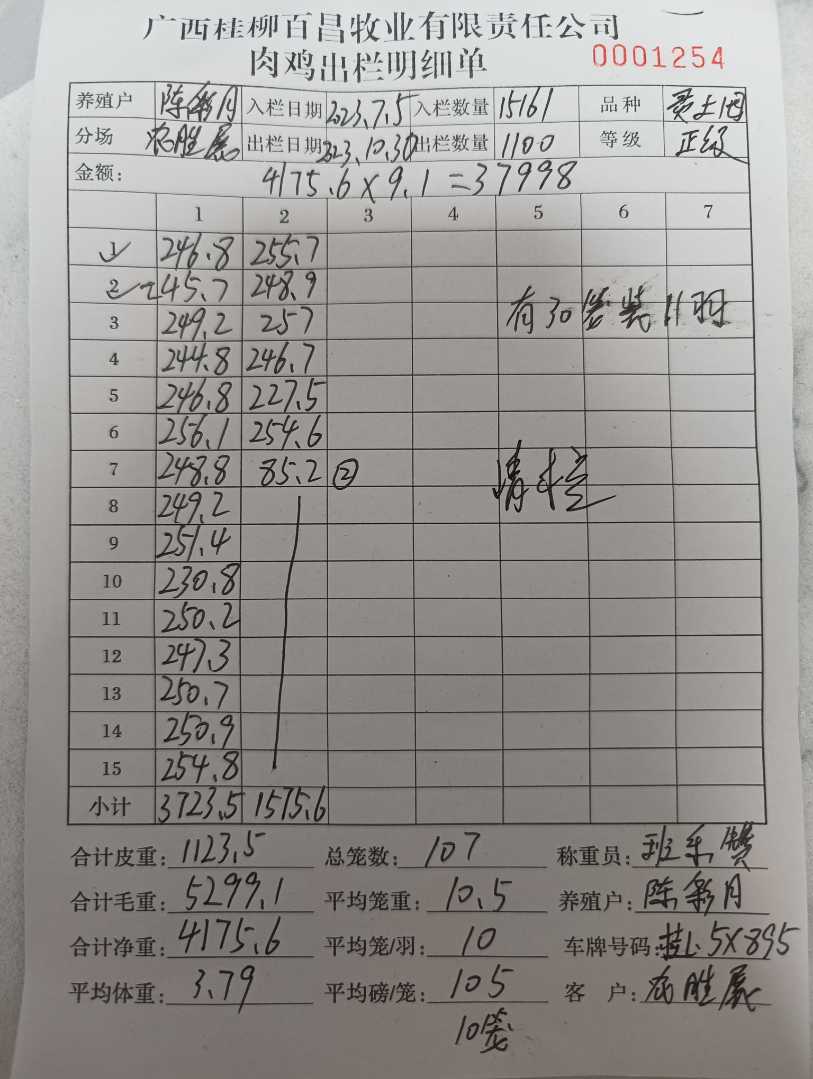 广西桂柳百昌牧业有限责任公司
肉鸡出栏明细单 0001254
养殖户 陈彩月 入栏日期 2023.7.5 入栏数量 15161 品种
分场 农胜展 出栏日期 2023.10.30 出栏数量 1100 等级 正级
金额: 4175.6×9.1=37998
1 2 3 4 5 6 7
1 246.8 255.7
2 245.7 248.9
3 249.2 257 有30笼装11羽
4 244.8 246.7
5 246.8 227.5
6 256.1 254.6
7 248.8 85.2 ② 清栏
8 249.2
9 251.4
10 230.8
11 250.2
12 247.3
13 250.7
14 250.9
15 254.8
小计 3723.5 1575.6
合计皮重: 1123.5 总笼数: 107 称重员: 班
合计毛重: 5299.1 平均笼重: 10.5 养殖户: 陈彩月
合计净重: 4175.6 平均笼/羽: 10 车牌号码: 桂L.5X895
平均体重: 3.79 平均磅/笼: 105 客 户: 农胜展
10笼